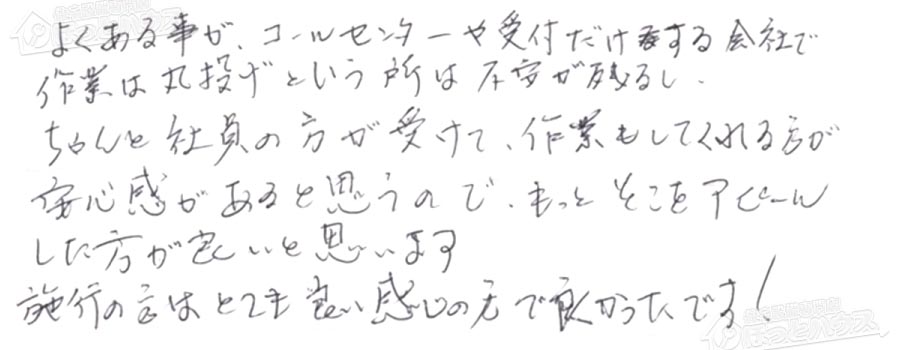 よくある事が、コールセンターや受付だけをする会社で
作業は丸投げという所は不安が残るし、
ちゃんと社員の方が受けて、作業もしてくれる方が
安心感があると思うので、もっとそこをアピール
した方が良いと思います
施行の方はとても良い感じの方で良かったです!
ほっとハウス